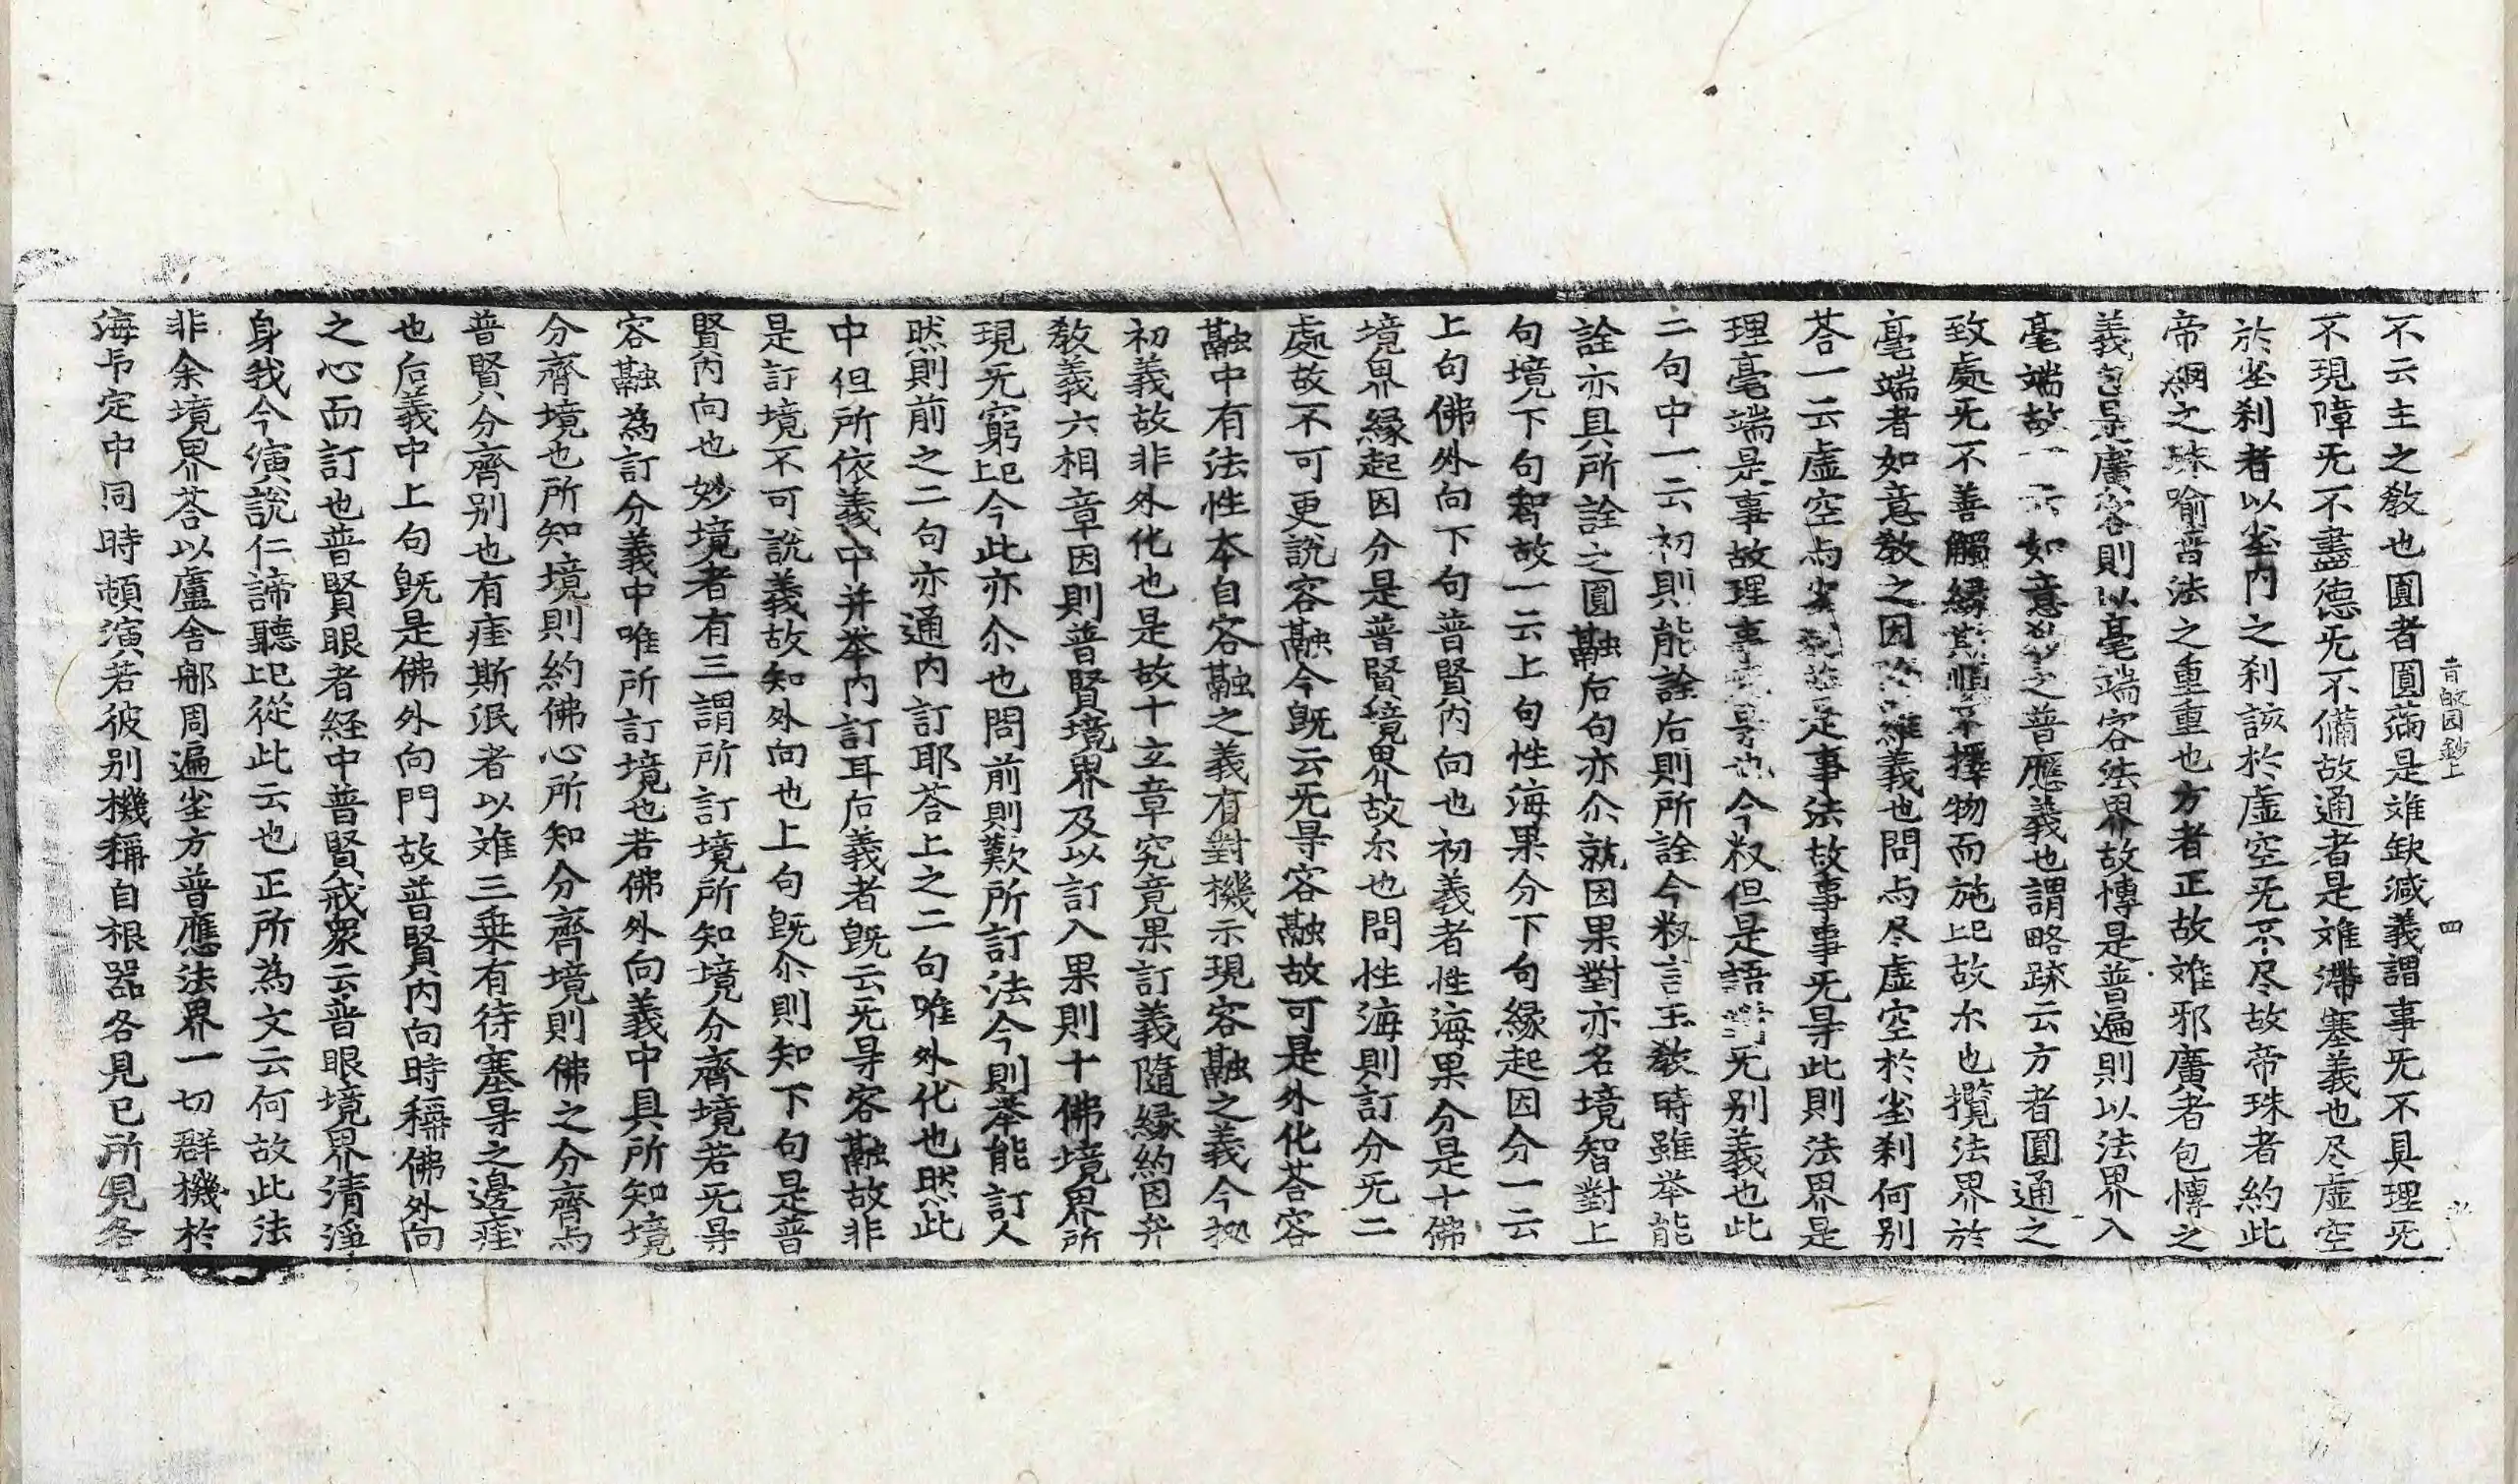 不云主之敎也圓者圓滿是䧺缺減義謂事旡不具理旡
不現障旡不盡德旡不備故通者是䧺滯塞義也尽虛空
於尘刹者以尘內之刹該於虛空旡不尽故帝珠者約此
帝網之珠喻普法之重重也方者正故䧺邪廣者包愽之
義包是廣容則以毫端容法界故愽是普遍則以法界入
毫端故一云如意敎之普應義也謂略䟽云方者圓通之
致處旡不善觸緣斯順不擇物而施也故尒也攬法界於
毫端者如意敎之因陁羅義也問与尽虛空於尘刹何別
荅一云虛空与尘刹並是事法故事事旡㝵此則法界是
理毫端是事故理事旡㝵也今釈但是語對旡别義也此
二句中一云初則能詮后則所詮今釈言主敎時雖举能
詮亦具所詮之圓融后句亦尒就因果對亦名境智對上
句境下句智故一云上句性海果分下句緣起因分一云
上句佛外向下句普賢內向也初義者性海果分是十佛
境界緣起因分是普賢境界故尒也問性海則訂分旡二
處故不可更說容融今旣云旡㝵容融故可是外化荅容
融中有法性本自容融之義有對機示現容融之義今拠
初義故非外化也是故十立章究竟果訂義隨緣約因弁
敎義六相章因則普賢境界及以訂入果則十佛境界所
現旡窮已今此亦尒也問前則歎所訂法今則举能訂人
然則前之二句亦通內訂耶荅上之二句唯外化也然此
中但所依義中并举內訂耳后義者旣云旡㝵容融故非
是訂境不可說義故知外向也上句旣尒則知下句是普
賢內向也妙境者有三謂所訂境所知境分齊境若旡㝵
容融為訂分義中唯所訂境也若佛外向義中具所知境
分齊境也所知境則約佛心所知分齊境則佛之分齊与
普賢分齊別也有𨓍斯泯者以䧺三乗有待塞㝵之邊𨓍
也后義中上句旣是佛外向門故普賢內向時稱佛外向
之心而訂也普賢眼者経中普賢戒衆云普眼境界清淨
身我今演說仁諦聽已從此云也正所為文云何故此法
非余境界荅以盧舍那周遍尘方普應法界一切群機於
海印定中同時頓演若彼別機稱自根器各見已所見各